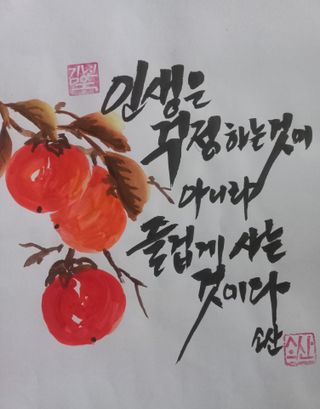 인생은
걱정하는것이
아니라
즐겁게 사는
것이다
소산
소산